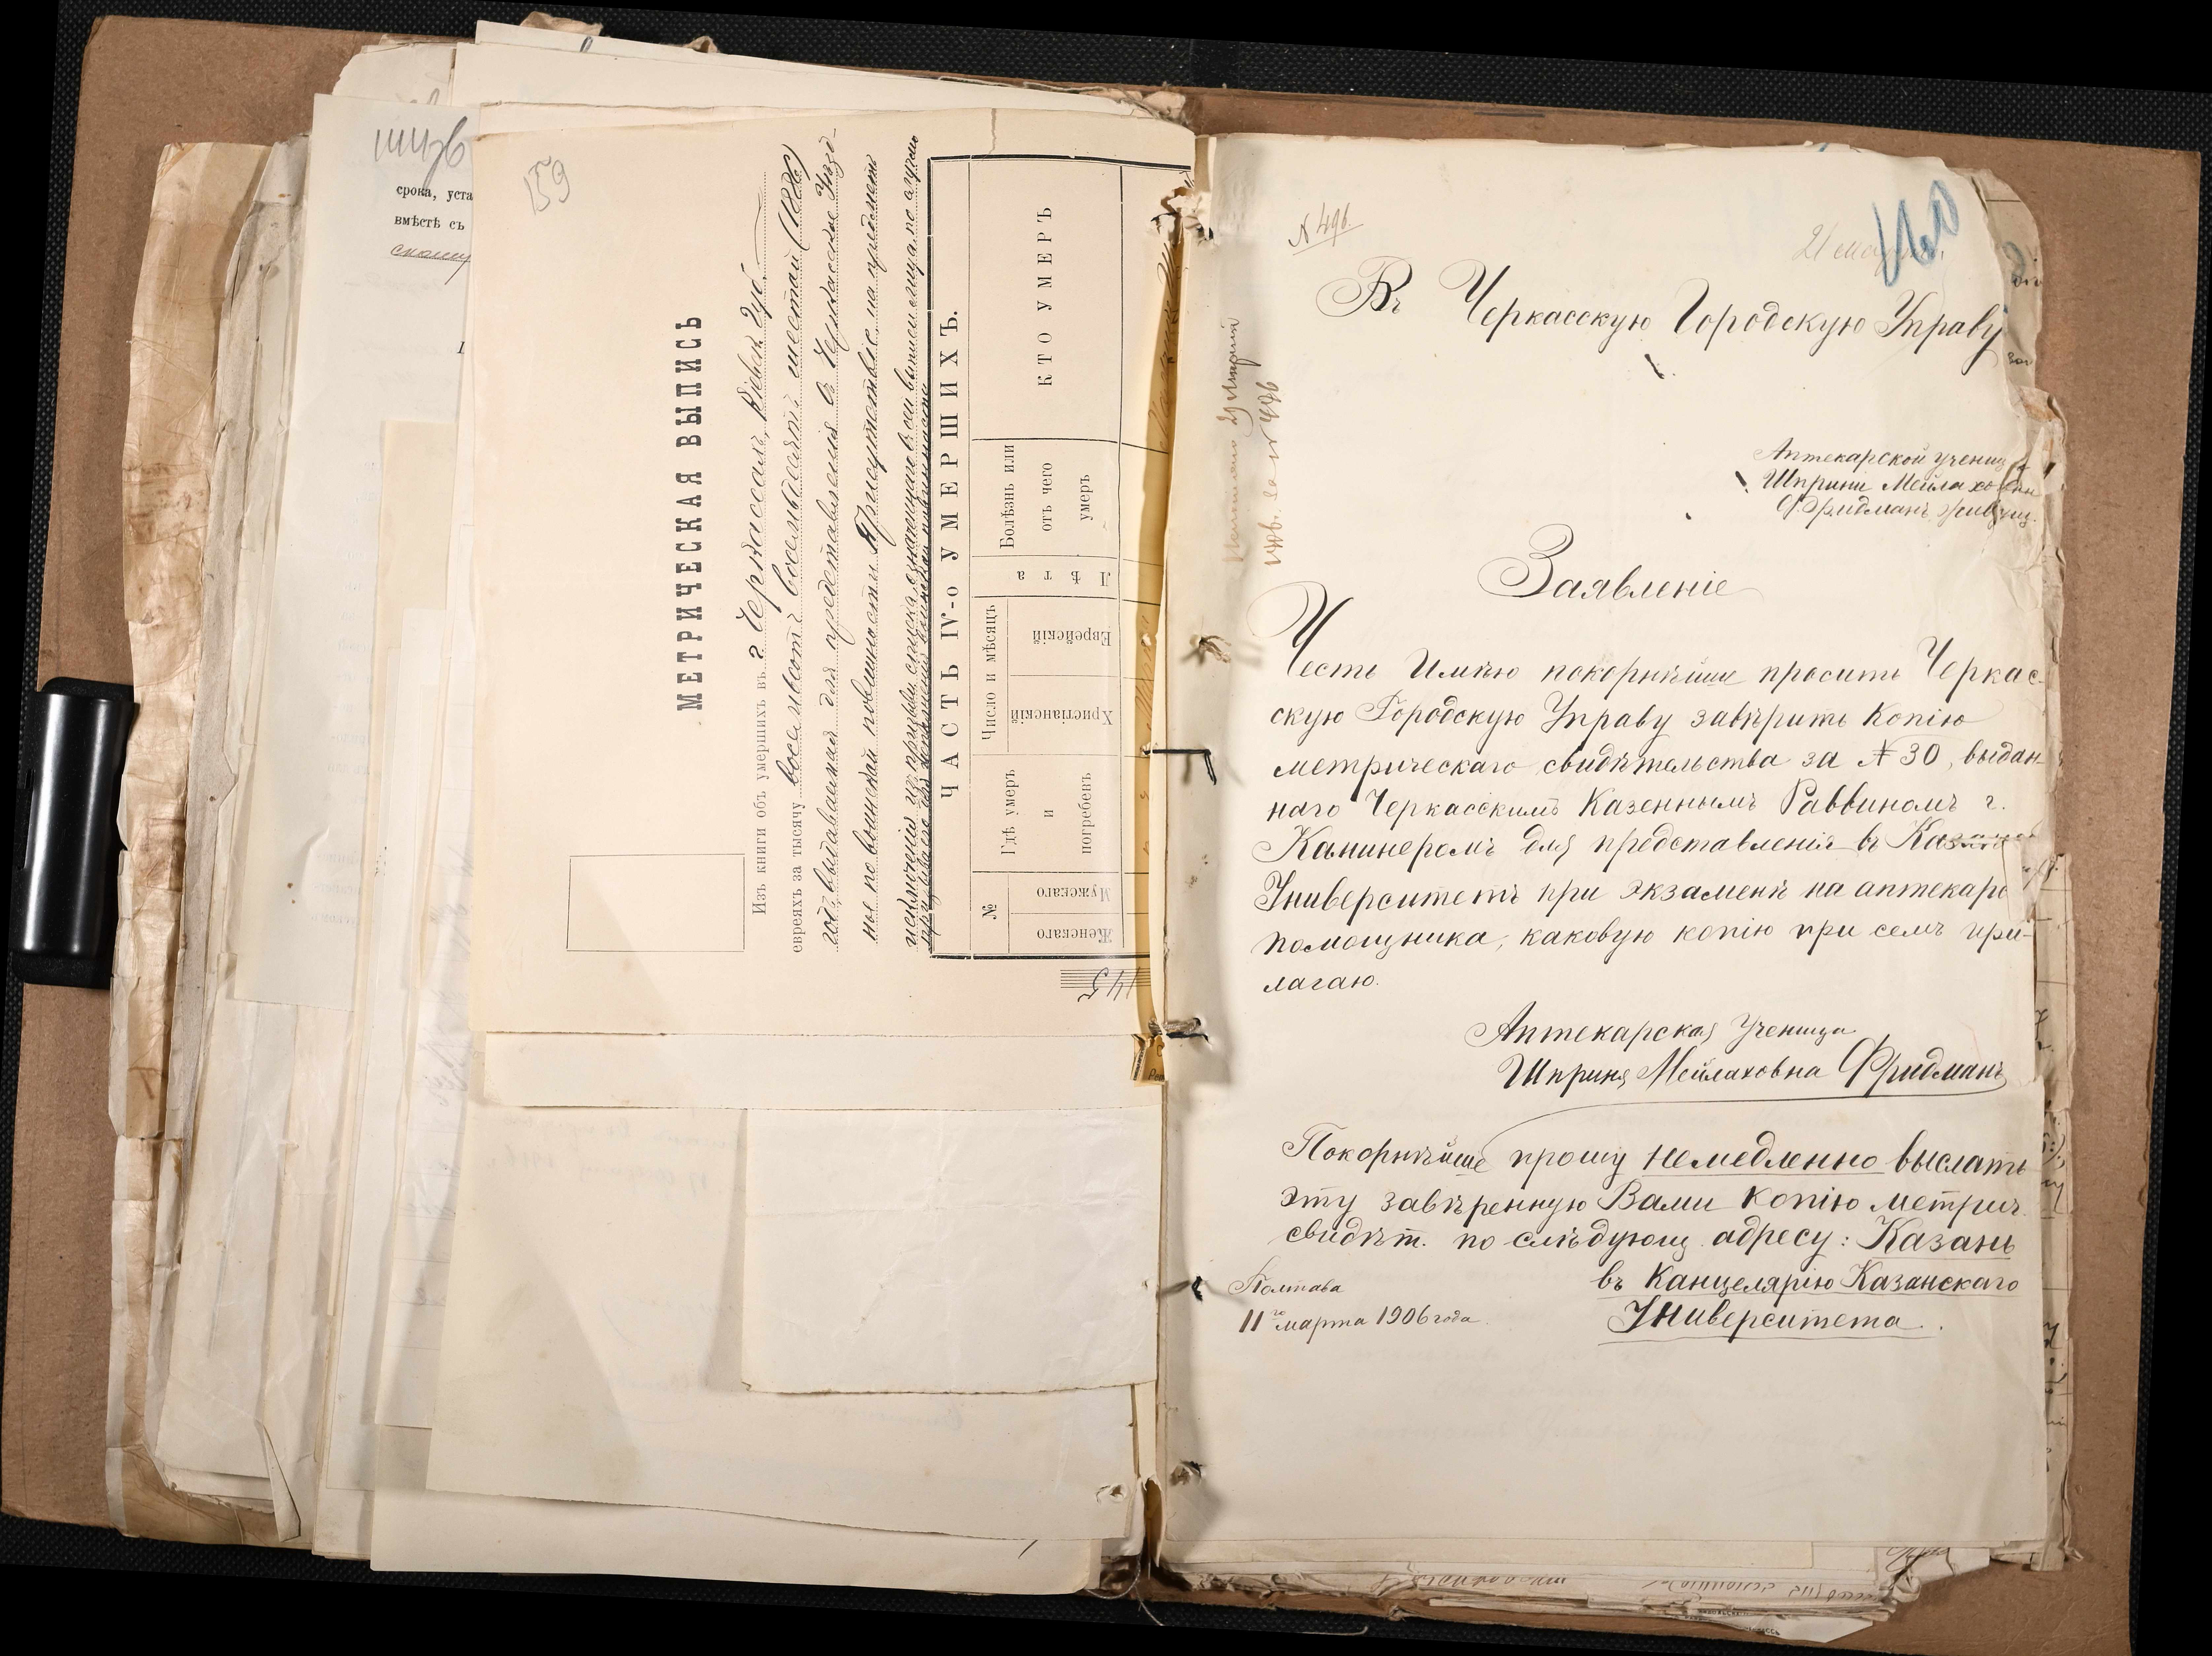 срока, уста
вмѣстѣ съ
159
МЕТРИЧЕСКАЯ ВЫПИСЬ
Изъ книги объ умершихъ въ г Черкассахъ, Кіевск. Губ.
евреяхъ за тысячу восемьсотъ восемьдесятъ шестой (1886)
годъ, выдаваемая для представленія въ Черкасское Уѣзд-
ное по воинской повинности Присутствіе на предметъ
исключенія изъ призыв. списка
ЧАСТЬ IV-о УМЕРШИХЪ.
№
Женскаго
Мужскаго
Гдѣ умеръ
и
погребенъ
Число и мѣсяцъ
Христіанскій
Еврейскій
Лѣта
Болѣзнь или
отъ чего
умеръ
КТО УМЕРЪ
145
№ 496.
160
21 марта
Въ Черкасскую Городскую Управу
Аптекарской учениц
Шприни Мейлаховны
Фридманъ живущ.
Заявленіе
Честь Имѣю покорнѣйше просить Черкас-
скую Городскую Управу завѣрить Копію
метрическаго свидѣтельства за № 30, выдан-
наго Черкасскимъ Казеннымъ Раввиномъ г.
Канинеромъ для представленія въ
Университетъ при экзаменѣ на аптекарс
помощника, каковую копію при семъ при-
лагаю.
Аптекарская Ученица
Шприня Мейлаховна Фридманъ
Покорнѣйше прошу немедленно выслать
эту завѣренную Вами копію метрич.
свидѣт. по слѣдующ. адресу: Казань
въ Канцелярію Казанскаго
Университета.
Полтава
11го марта 1906 года.